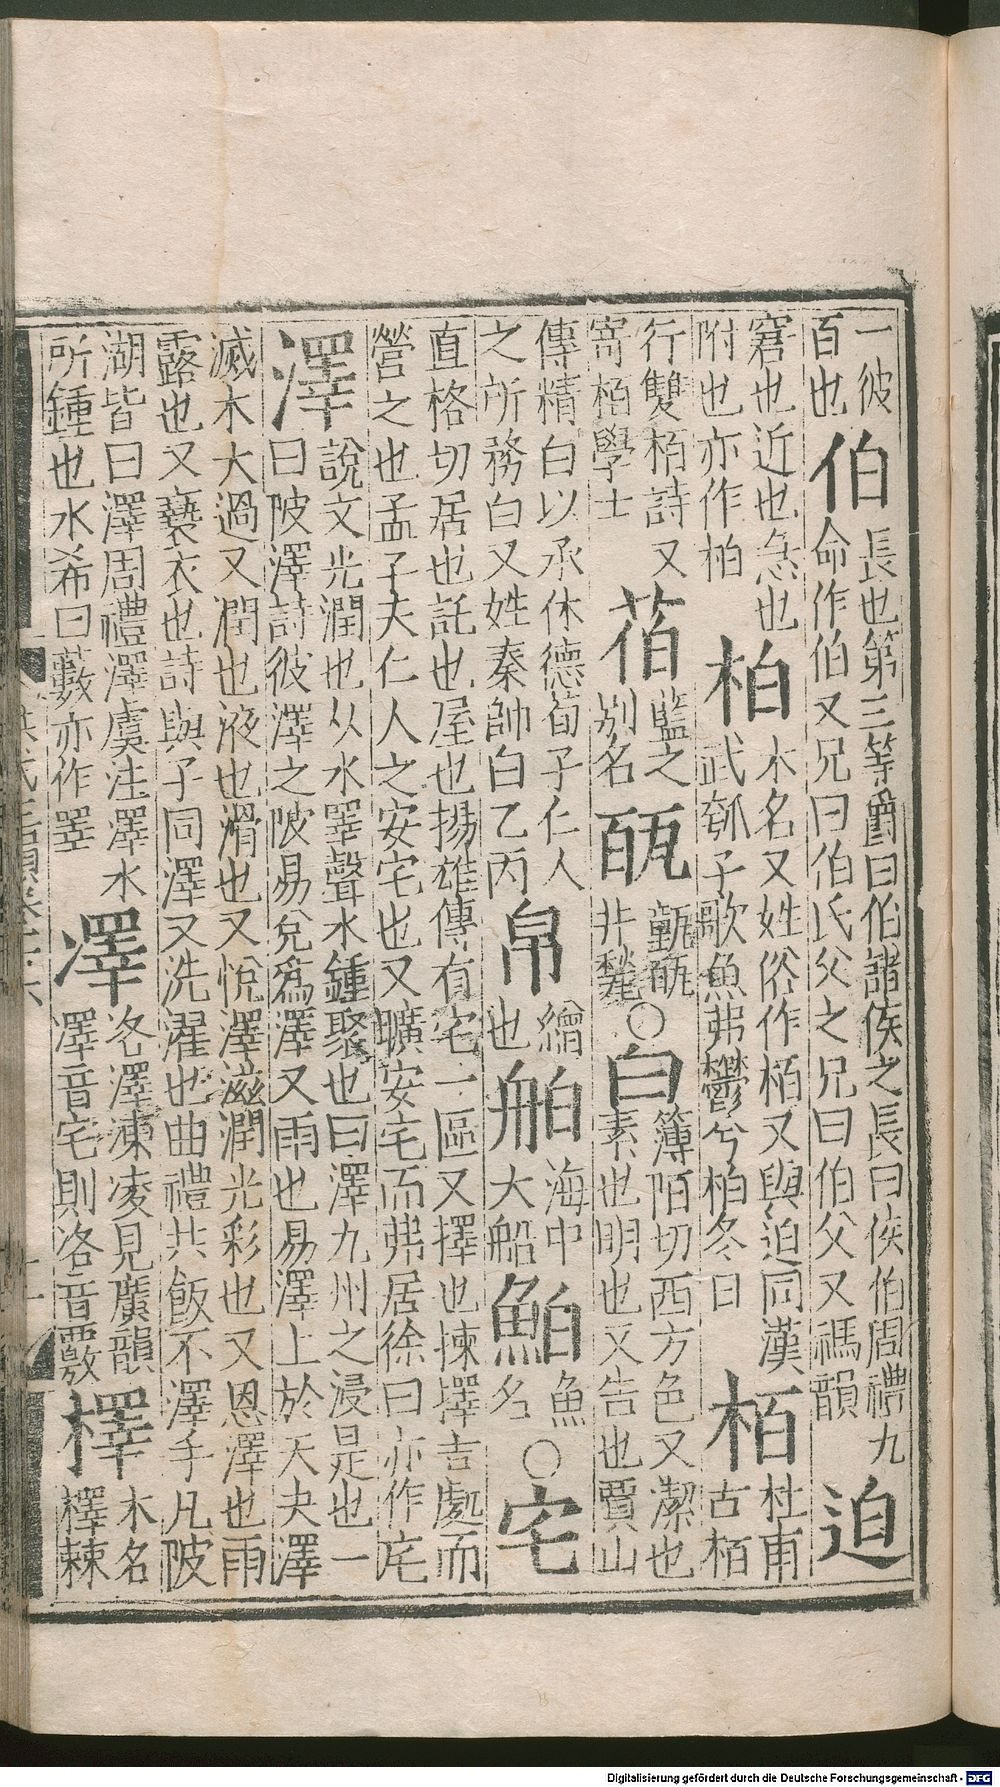 一彼百也伯長也第三等爵曰伯諸侯之長曰侯伯周禮九命作伯又兄曰伯氏父之兄曰伯父又禡韻迫
窘也近也急也附也亦作柏柏木名又姓俗作栢又與迫同漢武瓠子歌魚弗鬱兮柏冬日栢杜甫古栢
行雙栢詩又寄栢學士萡藍之別名瓸甎瓸井甃○白簿陌切西方色又潔也素也明也又告也賈山
傳精白以承休德荀子仁人之所務白又姓秦帥白乙丙帛繒也舶海中大船鮊魚名○宅
直格切居也託也屋也揚雄傳有宅一區又擇也揀擇吉處而營之也孟子夫仁人之安宅也又曠安宅而弗居徐曰亦作厇
澤說文光潤也从水睪聲水鍾聚也曰澤九州之浸是也一曰陂澤詩彼澤之陂易兌爲澤又雨也易澤上於天夬澤
滅木大過又潤也液也滑也又恱澤滋潤光彩也又恩澤也雨露也又褻衣也詩與子同澤又洗濯也曲禮共飯不澤手凡陂
湖皆曰澤周禮澤虞注澤水所鍾也水希曰藪亦作睪凙洛澤凍凌見廣韻澤音宅則洛音斁檡木名檡棘
Digitalisierung gefördert durch die Deutsche Forschungsgemeinschaft - DFG